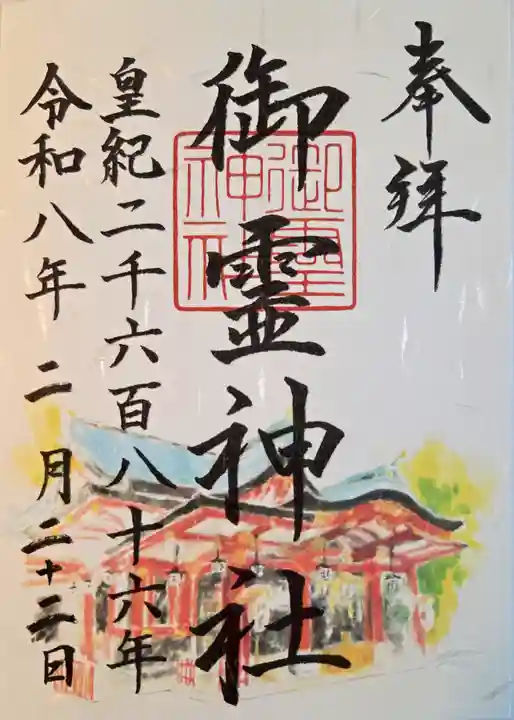 奉拝
御霊神社
御霊神社
皇紀二千六百八十六年
令和八年 二月二十二日